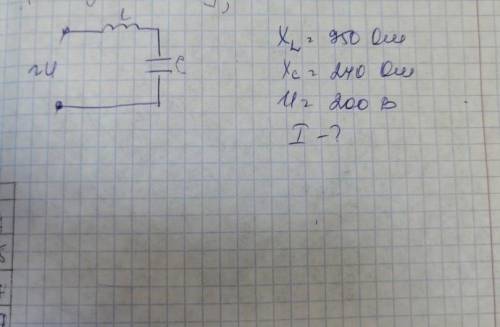 L
~U
C
X_L = 950 Ом
X_C = 240 Ом
U = 200 В
I - ?